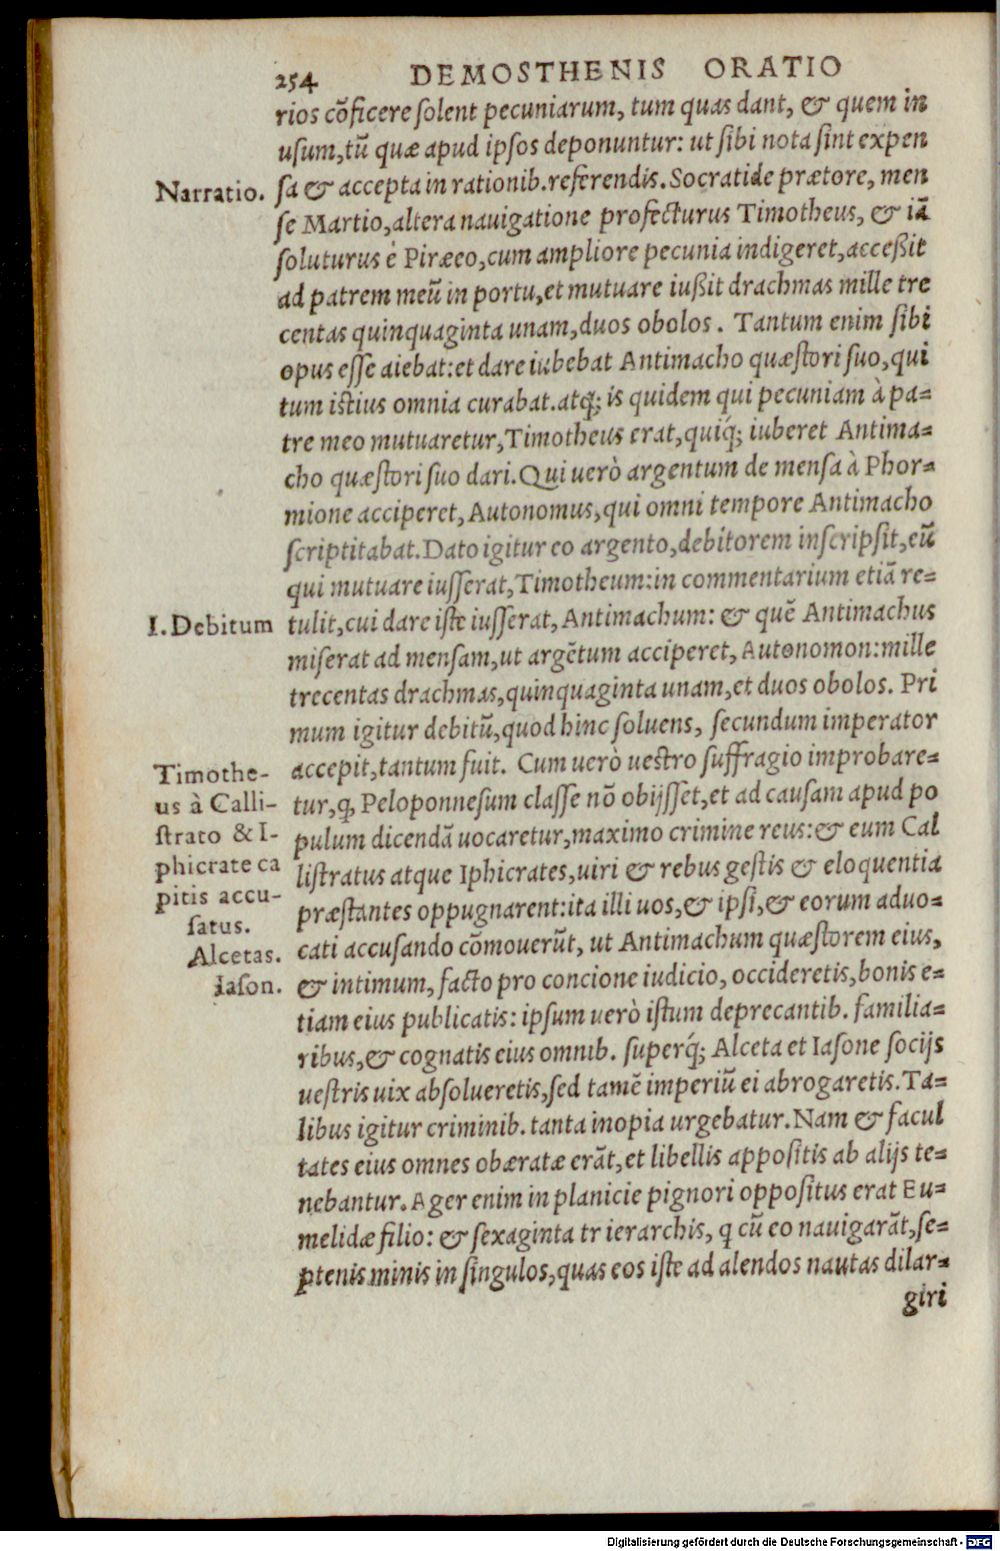 254 DEMOSTHENIS ORATIO
rios cõficere ſolent pecuniarum, tum quas dant, & quem in
uſum, tũ quæ apud ipſos deponuntur: ut ſibi nota ſint expen
Narratio. ſa & accepta in rationib. referendis. Socratide prætore, men
ſe Martio, altera nauigatione profecturus Timotheus, & iã
ſoluturus è Piræeo, cum ampliore pecunia indigeret, acceßit
ad patrem meũ in portu, et mutuare iußit drachmas mille tre
centas quinquaginta unam, duos obolos. Tantum enim ſibi
opus eſſe aiebat: et dare iubebat Antimacho quæſtori ſuo, qui
tum iſtius omnia curabat. atq́; is quidem qui pecuniam à pa-
tre meo mutuaretur, Timotheus erat, quiq́; iuberet Antima-
cho quæſtori ſuo dari. Qui uerò argentum de menſa à Phor-
mione acciperet, Autonomus, qui omni tempore Antimacho
ſcriptitabat. Dato igitur eo argento, debitorem inſcripſit, eũ
qui mutuare iuſſerat, Timotheum: in commentarium etiã re-
I. Debitum tulit, cui dare iſte iuſſerat, Antimachum: & quẽ Antimachus
miſerat ad menſam, ut argẽtum acciperet, Autonomon: mille
trecentas drachmas, quinquaginta unam, et duos obolos. Pri
mum igitur debitũ, quod hinc ſoluens, ſecundum imperator
accepit, tantum fuit. Cum uerò ueſtro ſuffragio improbare-
tur, q, Peloponneſum claſſe nõ obijſſet, et ad cauſam apud po
pulum dicendã uocaretur, maximo crimine reus: & eum Cal
liſtratus atque Iphicrates, uiri & rebus geſtis & eloquentia
præſtantes oppugnarent: ita illi uos, & ipſi, & eorum aduo-
cati accuſando cõmouerũt, ut Antimachum quæſtorem eius,
& intimum, facto pro concione iudicio, occideretis, bonis e-
tiam eius publicatis: ipſum uerò iſtum deprecantib. familia-
ribus, & cognatis eius omnib. ſuperq́; Alceta et Iaſone ſocijs
ueſtris uix abſolueretis, ſed tamẽ imperiũ ei abrogaretis. Ta-
libus igitur criminib. tanta inopia urgebatur. Nam & facul
tates eius omnes obæratæ erãt, et libellis appoſitis ab alijs te-
nebantur. Ager enim in planicie pignori oppoſitus erat Eu-
melidæ filio: & ſexaginta trierarchis, q cũ eo nauigarãt, ſe-
ptenis minis in ſingulos, quas eos iſte ad alendos nautas dilar-
giri
Timothe-
us à Calli-
ſtrato & I-
phicrate ca
pitis accu-
ſatus.
Alcetas.
Iaſon.
Digitalisierung gefördert durch die Deutsche Forschungsgemeinschaft - DFG